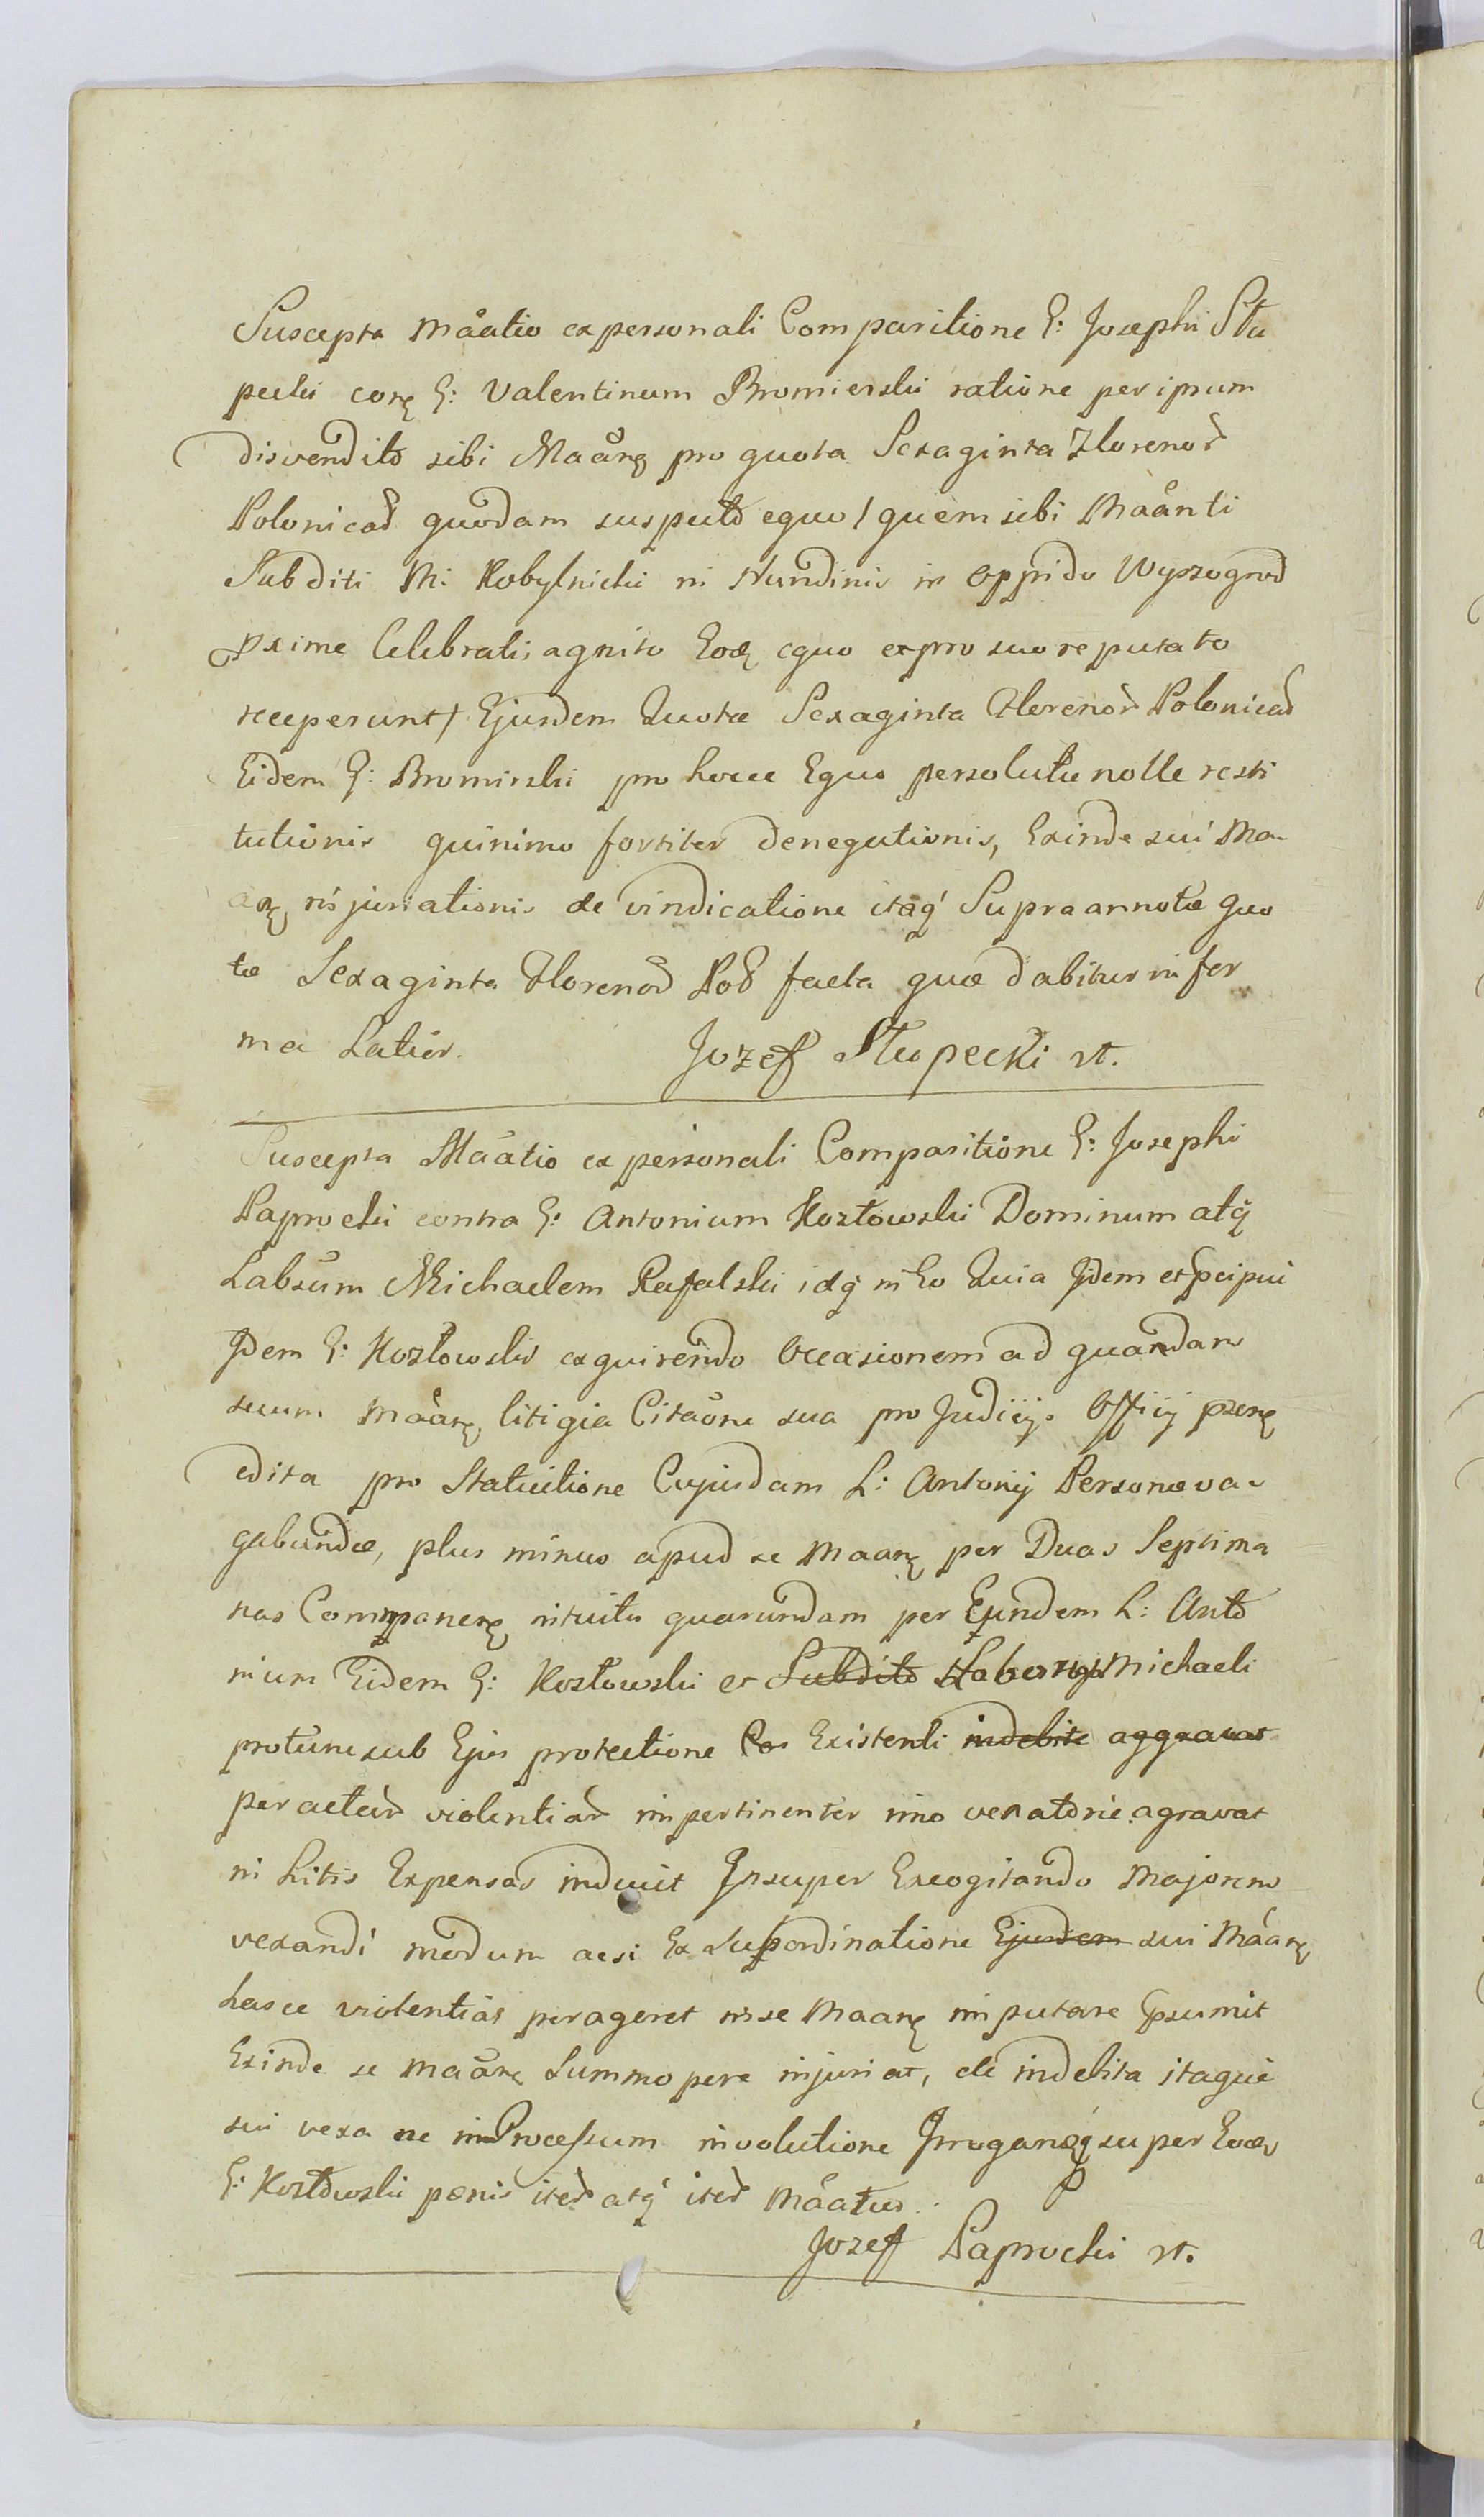 Suscepta Mãatio ex personali Comparitione G: Josephi Słu
pecki conę G: Valentinum Bromierski ratione per ipsum
disvendito sibi Maãnę pro quota Sexaginta Florenoȓ
Polonicaȓ quodam suspecto equo / quem sibi Maãnti
Subditi M: Kobylnicki in Nundinis in Oppido Wyszogrod
pxime Celebratis agnito Eoḍ equo et pro suo reputato
receperunt / Ejusdem Quotæ Sexaginta Florenoȓ Polonicaȓ
Eidem G: Bromirski pro hocce Equo persolutæ nolle resti
tutionis quinimo fortiter denegationis, Exinde sui Ma-
anę injuriationis de vindicatione itaq' Supra annotæ quo
tæ Sexaginta Florenoȓ Pol facta quæ dabitur in for
ma Latior. Jozef Słupecki mp.
Suscepta Mãatio ex personali Comparitione G: Josephi
Paprocki contra G: Antonium Kozłowski Dominum atq́
Labsum Michaelem Rafalski idq́ in Eo Quia Idem et pcipui
Idem G: Kozłowski exquirendo Occasionem ad quandam
suum Mãanę, litigia Citãone sua pro Judicijs Officij pzenę
edita pro Statuitione Cujusdam L: Antonij Personæ va-
gabundæ, plus minus apud se Maanę per Duas Septima
nas Companenę, intuitu quarundam per Eundem L: Anto
nium Eidem G: Kozłowski et Subdito Laborijo Michaeli
protunc sub Ejus protectione Existenti indebite aggravat
peractaȓ violentiaȓ impertinenter imo vexatorie agravat
in Litis Expensas induit Insuper Excogitando Majorem
vexandi modum acsi Ex Subordinatione Ejusdem sui Mãanę
hasce violentias perageret in se Maanę imputare psumit
Exinde se maãnę Summopere injuriat, de indebita itaque
sui vexa ne in Processum involutione Irroganḍq́ super Eoḍ
G: Kozłowski pœnis iteȓ atq́ iteȓ Mãatur.
Jozef Paprocki mp.